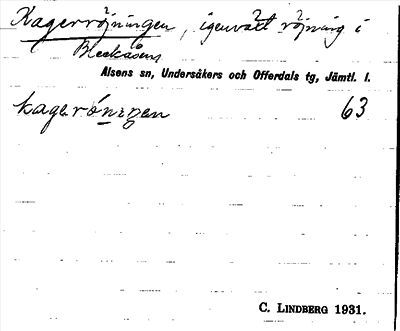 Kagerröjningen, igenväxt röjning i
Bleckåsens
Alsens sn, Undersåkers och Offerdals tg, Jämtl. l.
kagerónigen 63
C. LINDBERG 1931.